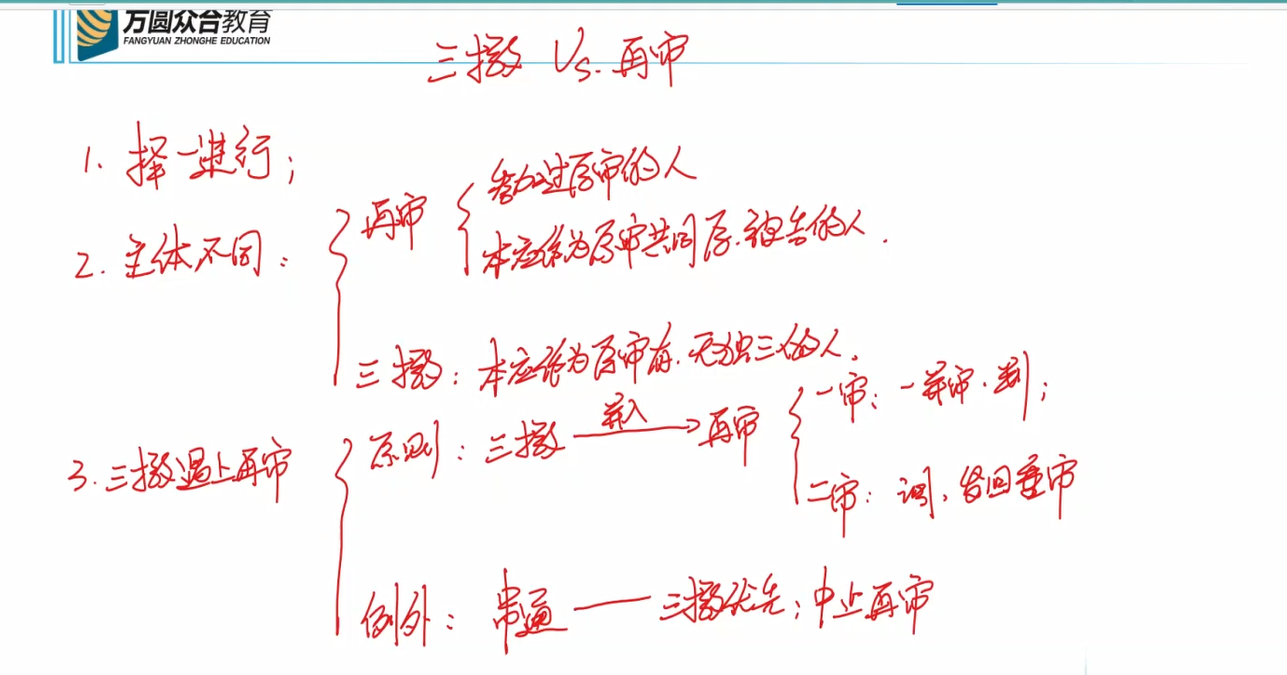 万圆众合教育
FANGYUAN ZHONGHE EDUCATION
三撤 Vs. 再审
1. 择一进行;
2. 主体不同:
再审
参加过原审的人
本应作为原审共同原.被告的人.
三撤: 本应作为原审有.无独三的人.
3. 三撤遇上再审
原则: 三撤 并入 再审
一审: 一并审.判;
二审: 调, 发回重审
例外: 串通 — 三撤优先; 中止再审